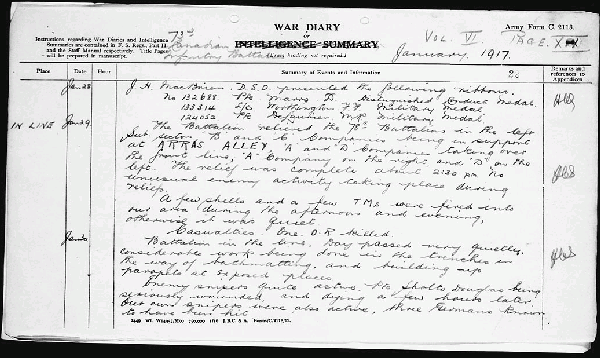 WAR DIARY
OF
INTELLIGENCE SUMMARY.
(Erase heading not required.)
Army Form C. 2118.
Instructions regarding War Diaries and Intelligence
Summaries are contained in F. S. Regs., Part II.
and the Staff Manual respectively. Title Pages
will be prepared in manuscript.
73rd
Canadian
Infantry Battalion
VOL. VI PAGE.
January, 1917.
Place Date Hour Summary of Events and Information Remarks and references to Appendices
Jan 28 J. H. MacBrien. D.S.O presented the following ribbons.
No 132688 Pte Distinguished Conduct Medal.
133314 Military Medal
124052 Pte Military Medal
IN LINE Jan 29 The Battalion relieved the Battalion in the left
Sub sector. B and C Companies being in support
at ARRAS ALLEY, "A" and "D" Companies taking over
the front line, "A" Company on the right and "D" on the
left. The relief was complete about 2.30 pm no
unusual enemy activity taking place during
relief.
A few shells and a few TMs were fired into
our area during the afternoon and evening,
otherwise it was quiet
Casualties One O.R killed.
Battalion in the line. Day passed very quietly.
Considerable work being done in the trenches in
the way of and building up
parapets at exposed places.
Enemy snipers quite active. Pte Sholto Douglas being
seriously wounded and dying a few hours later
Our own snipers were also active, three Germans known
to have been hit